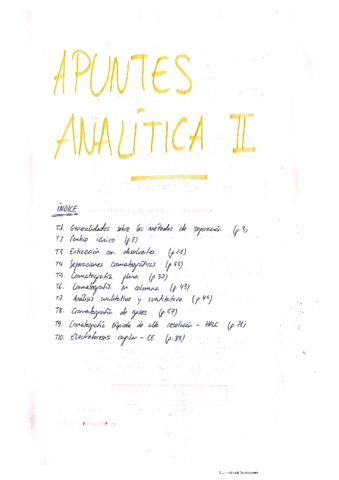 APUNTES
ANALÍTICA II
ÍNDICE
T.1. Generalidades sobre los métodos de separación (p.3)
T.2. iónico (p.7)
T.3. Extracción con disolventes
T.4. Separaciones cromatográficas (p.23)
T.5. Cromatografía plana (p.32)
T.6. Cromatografía en columna (p.43)
T.7. Análisis cualitativo y cuantitativo (p.46)
T.8. Cromatografía de gases (p.57)
T.9. Cromatografía líquida de alta resolución - HPLC (p.71)
T.10. Electroforesis capilar - CE (p.89)